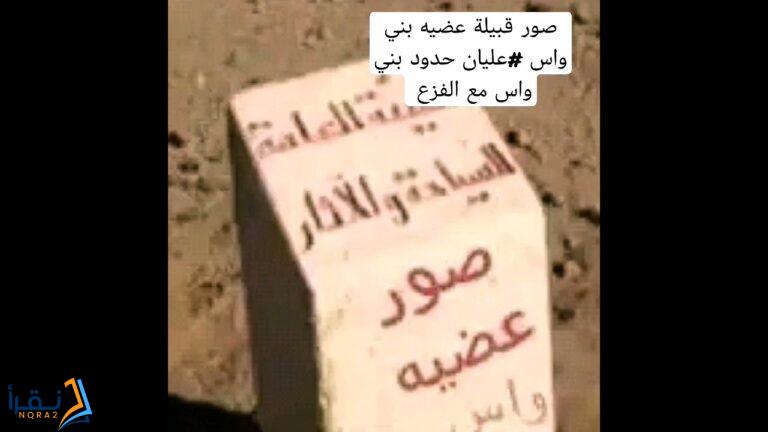 صور قبيلة عضيه بني
واس #عليان حدود بني
واس مع الفزع
العامة
للسياحة والآثار
صور
عضيه
واس
نقرأ
NQRA2